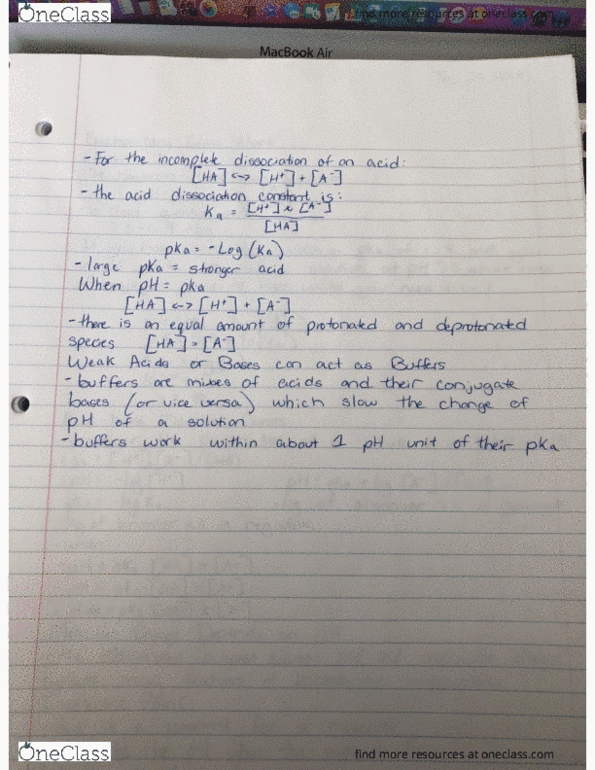 OneClass
find more resources at oneclass.com
MacBook Air
- For the incomplete dissociation of an acid:
[HA] <-> [H⁺] + [A⁻]
- the acid dissociation constant is:
Ka = [H⁺] x [A⁻]
[HA]
pKa = - Log (Ka)
- large pKa = stronger acid
When pH = pKa
[HA] <-> [H⁺] + [A⁻]
- there is an equal amount of protonated and deprotonated
species [HA] = [A⁻]
Weak Acids or Bases can act as Buffers
- buffers are mixes of acids and their conjugate
bases (or vice versa) which slow the change of
pH of a solution
- buffers work within about 1 pH unit of their pKa
OneClass
find more resources at oneclass.com